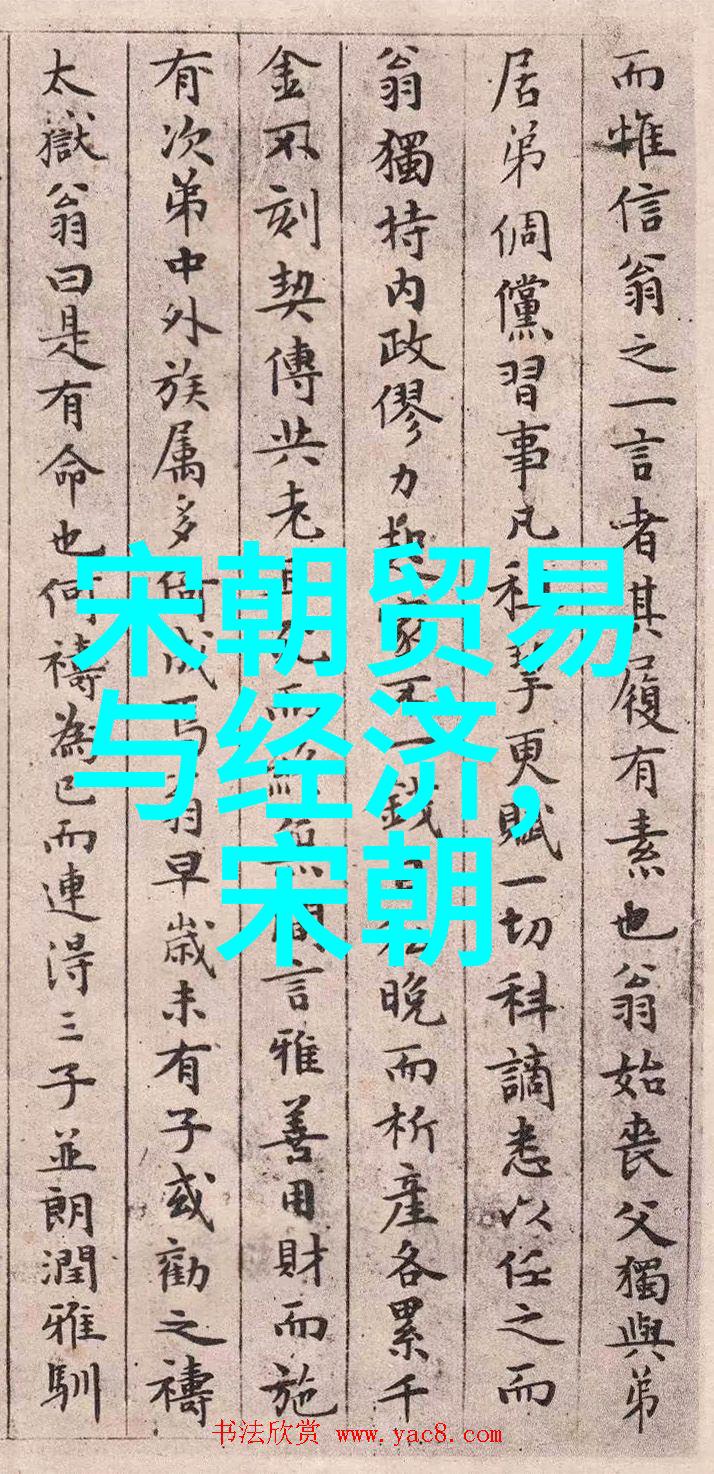 而惟信翁之一言者其履有素也翁始丧父獨與弟
居弟倜儻習事凡更賦一切科謫悉以任之而
翁獨持内政僇力晚而析產各累千
金不刻契傳共老言雅善用財而施
有次弟中外族属多早歲未有子或勸之禱
太嶽翁曰是有命也何禱為已而連得三子並朗潤雅馴
宋朝贸易
与经济,
宋朝
书法欣赏 www.yac8.com